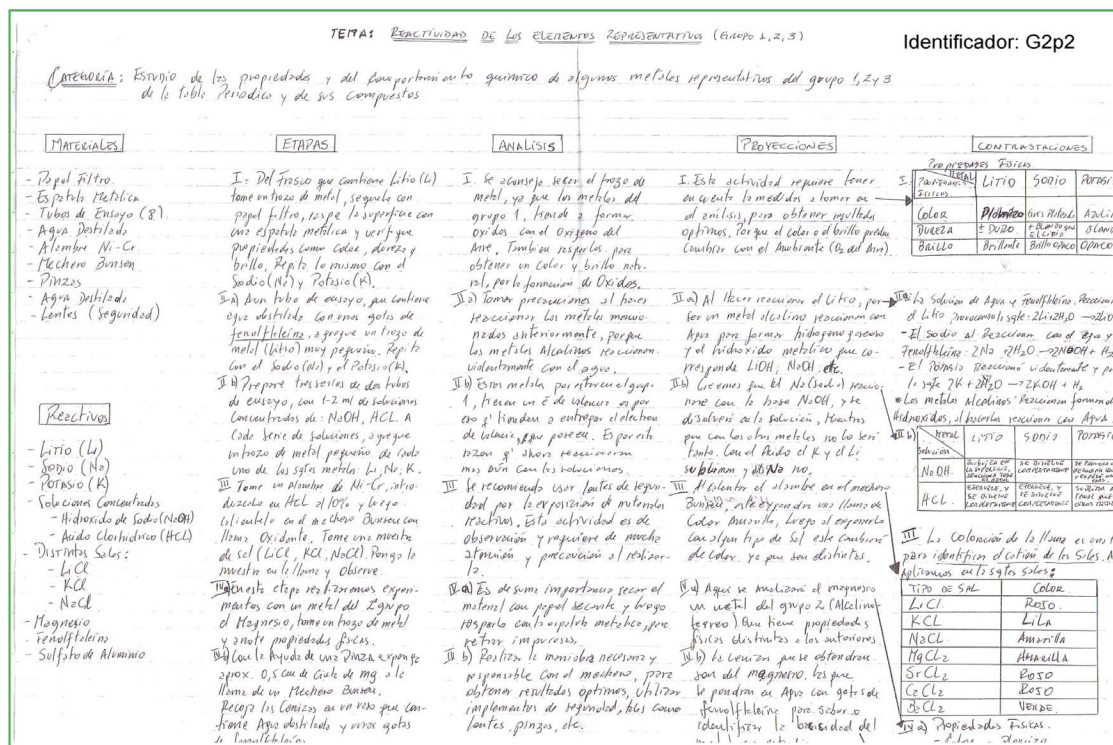 TEMA: REACTIVIDAD DE LOS ELEMENTOS REPRESENTATIVOS (GRUPO 1, 2, 3)
Identificador: G2p2
CATEGORÍA: Estudio de las propiedades y del comportamiento químico de algunos metales representativos del grupo 1, 2 y 3
de la tabla Periódica y de sus compuestos
MATERIALES
- Papel Filtro.
- Espatula Metalica
- Tubos de Ensayo (8).
- Agua Destilada
- Alambre Ni-Cr.
- Mechero Bunsen
- Pinzas
- Agua Destilada
- Lentes (Seguridad)
Reactivos
- Litio (Li)
- Sodio (Na)
- Potasio (K)
- Soluciones Concentradas
- Hidroxido de Sodio (NaOH)
- Acido Clorhidrico (HCL)
- Distintas Sales:
- LiCl
- KCl
- NaCl
- Magnesio
- Fenolftaleina
- Sulfato de Aluminio
ETAPAS
I- Del Frasco que contiene Litio (Li)
tome un trozo de metal, seguelo con
papel filtro, raspe la superficie con
una espatula metalica y verifique
propiedades como color, dureza y
brillo, Repita lo mismo con el
Sodio (Na) y Potasio (K).
II a) A un tubo de ensayo, que contiene
agua destilada con unas gotas de
fenolftaleina, agregue un trozo de
metal (litio) muy pequeño. Repita
con el Sodio (Na) y el Potasio (K).
II b) Prepare tres series de dos tubos
de ensayo, con 1-2 ml de soluciones
Concentradas de: NaOH, HCL. A
Cada Serie de Soluciones, agregue
un trozo de metal pequeño de cada
uno de los sgtes metales: Li, Na, K.
III Tome un alambre de Ni-Cr, intro-
duzcalo en HCL al 10% y luego
calientelo en el mechero Bunsen con
llama Oxidante. Tome una muestra
de sal (LiCl, KCl, NaCl). Ponga la
muestra en la llama y Observe.
IV a) En esta etapa realizaremos experi-
mentos con un metal del 2º grupo
el Magnesio, tome un trozo de metal
y anote propiedades físicas.
IV b) Con la Ayuda de una Pinza exponga
aprox. 0,5 cm de Cinta de mg. a la
llama de un Mechero Bunsen.
Recoja las Cenizas en un vaso que con-
tiene Agua destilada y unas gotas
de fenolftaleina.
ANALISIS
I. Se aconseja secar el trozo de
metal, ya que los metales del
grupo 1, tiende a formar
oxidos con el Oxigeno del
Aire. Tambien rasparlos para
obtener un Color y brillo natu-
ral, por la formación de Oxidos.
II a) Tomar precauciones al hacer
reaccionar los metales mencio-
nados anteriormente, porque
los metales Alcalinos reaccionan
violentamente con el agua.
II b) Estos metales por estar en el grupo
1, tienen un é de valencia es por
eso q' tienden a entregar el electron
de valencia, que poseen. Es por esta
razon q' ahora reaccionaran
mas aun con las soluciones.
III Se recomienda usar lentes de seguri-
dad por la exposición de materiales
reactivos, Esta actividad es de
observación y requiere de mucha
atención y precaución al realizar-
la.
IV a) Es de suma importancia secar el
material con papel secante y luego
rasparlo con la espatula metalica, para
retirar impurezas.
IV b) Realizar la maniobra necesaria y
responsable con el mechero, para
obtener resultados optimos, Utilizar
implementos de seguridad, tales como
lentes, pinzas, etc.
PROYECCIONES
I. Esta actividad requiere tener
en cuenta la medidas a tomar en
el analisis, para obtener resultados
optimos, Porque el color o el brillo pueden
Cambiar con el Ambiente (O₂ del Aire)
II a) Al Hacer reaccionar el Litio, por
ser un metal alcalino reaccionan con
Agua para formar hidrogeno gaseoso
y el hidroxido metalico que co-
rresponde LiOH, NaOH. etc.
II b) Creemos que el Na (sodio) reaccio-
nara con la base NaOH, y se
disolverá en la solución, Mientras
que con los otros metales no lo seri
tanto. Con el Acido el K y el Li
subliman y el Na no.
III Al calentar el alambre en el mechero
Bunsen, este expandira una llama de
Color Amarillo, Luego al exponerlo
con algun tipo de Sal este Cambiará
de color, ya que son distintas.
IV a) Aqui se analizará el magnesio
un metal del grupo 2 (Alcalino
terreo) Que tiene propiedades
físicas distintas a los anteriores.
IV b) La Ceniza que se obtendran
son del magnesio. las que
se pondran en Agua con gotas de
fenolftaleina para saber o
identificar la basicidad del
CONTRASTACIONES
PROPIEDADES FISICAS
I.
METAL
Propiedades Fisicas
LITIO
SODIO
POTASI
COLOR
Plomizo
Gris Plateado
Azul
DUREZA
± DURO
+ BLANDO QUE EL LITIO
BLAN
BRILLO
Brillante
Brillo OPACO
OPACO
II a. La Solucion de Agua y Fenolftaleina, Reacciona
el Litio provocando lo sgte: 2Li+2H₂O → 2LiO
- El Sodio al Reaccionar con el agua y
Fenolftaleina: 2Na 2H₂O → 2NaOH + H₂
- El Potasio Reaccionó violentamente y p
lo sgte 2K + 2H₂O → 2KOH + H₂
* Los metales Alcalinos Reaccionan formando
Hidroxidos, al hacerlos reaccionar con Agua
II b)
Metal
Solucion
LITIO
SODIO
POTASI
NaOH.
SE DISUELVE COMPLETAMENTE
HCL.
III La Coloración de la llama es una
para identificar el catión de las Sales. A
Aplicamos en la sgtes Sales:
TIPO DE SAL
COLOR
LiCl.
ROJO.
KCL
LILA
NaCL.
Amarilla
MgCl₂
AMARILLA
SrCl₂
ROJO
CaCl₂
ROJO
BaCl₂
VERDE.
IV a) Propiedades Fisicas.
- Color - Plomizo